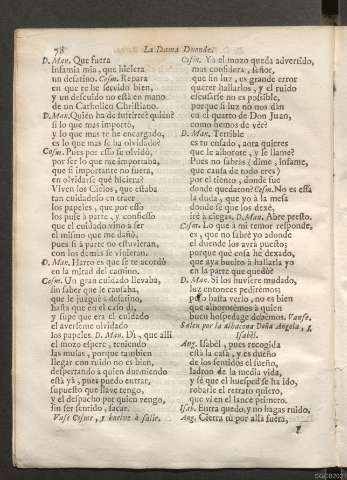 78
La Dama Duende.
D. Man. Que fuera
infamia mia, que hiciera
un desatino. Cosm. Repara
en que te he servido bien,
y un descuido no está en mano
de un Catholico Christiano.
D. Man. Quién ha de sufrirte? quién?
si lo que mas importò,
y lo que mas te he encargado,
es lo que mas se ha olvidado?
Cosm. Pues por esso se olvidó,
por ser lo que me importaba,
que si importante no fuera,
en olvidarse què hiciera?
Viven los Cielos, que estaba
tan cuidadoso en traer
los papeles, que por esso
los puse à parte, y confiesso
que el cuidado vino à ser
el mismo que me dañó,
pues si à parte no estuvieran,
con los demás se vinieran.
D. Man. Harto es que se te acordò
en la mitad del camino.
Cosm. Un gran cuidado llevaba,
sin saber que le causaba,
que le juzgué à desatino,
hasta que en el caso di,
y supe que era el cuidado
el averseme olvidado
los papeles. D. Man. Di, que allí
el mozo espere, teniendo
las mulas, porque tambien
llegar con ruido no es bien,
despertando à quien durmiendo
està yà, pues puedo entrar,
supuesto que llave tengo,
y el despacho por quien vengo,
sin ser sentido, sacar.
Vase Cosme, y buelve à salir.
Cosm. Ya el mozo queda advertido,
mas considera, señor,
que sin luz, es grande error
querer hallarlos, y el ruido
escusarse no es possible,
porque si luz no nos dàn
en el quarto de Don Juan,
como hemos de vèr?
D. Man. Terrible
es tu enfado, aora quieres
que le alborote, y le llame?
Pues no sabràs (dime, infame,
que causa de todo eres)
por el tiento, donde fue
donde quedaron? Cosm. No es essa
la duda, que yo à la mesa
donde sé que los dexé,
iré à ciegas. D. Man. Abre presto.
Cosm. Lo que à mi temor responde,
es, que no sabrè yo adonde
el duende los avrà puesto;
porque què cosa he dexado,
que aya buelto à hallarla yo
en la parte que quedò?
D. Man. Si los huviere mudado,
luz entonces pediremos;
pero hasta verlo, no es bien
que alborotemos à quien
buen hospedage debemos. Vanse.
Salen por la alhacena Doña Angela, y
Isabél.
Ang. Isabél, pues recogida
està la casa, y es dueño
de los sentidos el sueño,
ladron de la media vida,
y sé que el huesped se ha ido,
robarle el retrato quiero,
que vì en el lance primero.
Isab. Entra quedo, y no hagas ruido.
Ang. Cierra tù por allá fuera,